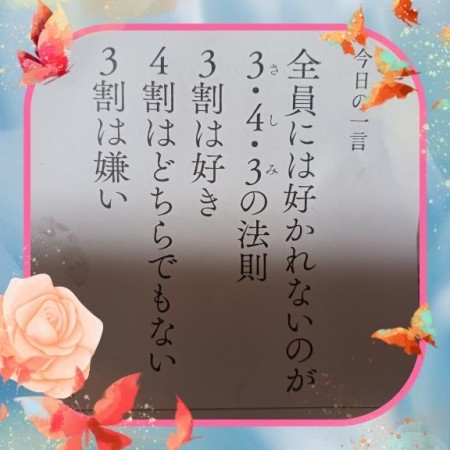 今日の一言
全員には好かれないのが
3・4・3の法則
さしみ
3割は好き
4割はどちらでもない
3割は嫌い